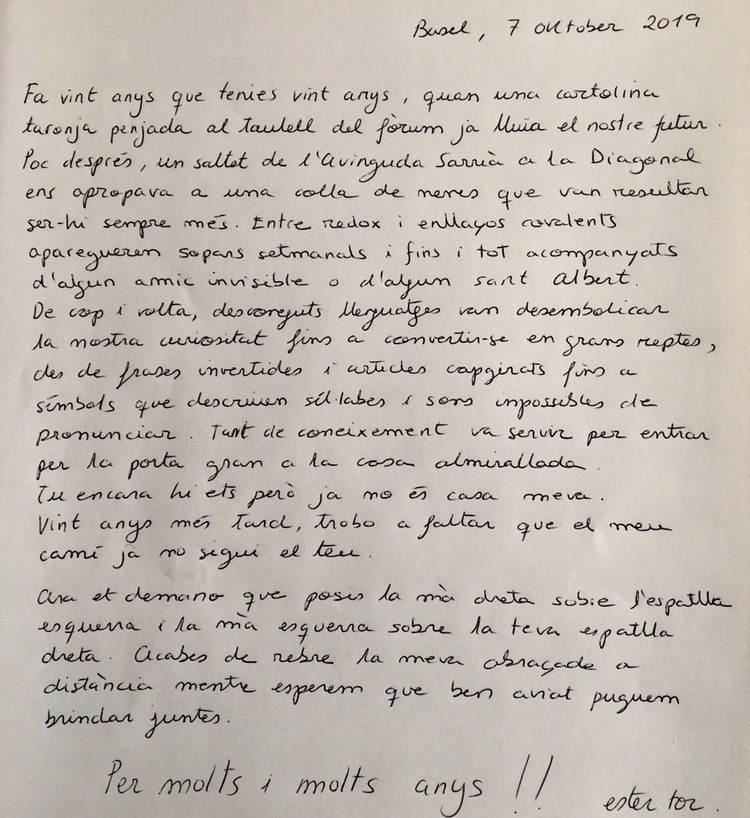 Basel, 7 Oktober 2019
Fa vint anys que tenies vint anys, quan una cartolina
taronja penjada al taulell del fòrum ja lluia el nostre futur.
Poc després, un saltet de l'Avinguda Sarrià a la Diagonal
ens apropava a una colla de nenes que van resultar
ser-hi sempre més. Entre redox i enllaços covalents
aparegueren sopars setmanals i fins i tot acompanyats
d'algun amic invisible o d'algun sant Albert.
De cop i volta, desconeguts llenguatges van desembolicar
la nostra curiositat fins a convertir-se en grans reptes,
des de frases invertides i articles capgirats fins a
símbols que descriuen síl·labes i sons impossibles de
pronunciar. Tant de coneixement va servir per entrar
per la porta gran a la casa almirallada.
Tu encara hi ets però ja no és casa meva.
Vint anys més tard, trobo a faltar que el meu
camí ja no sigui el teu.
Ara et demano que posis la mà dreta sobre l'espatlla
esquerra i la mà esquerra sobre la teva espatlla
dreta. Acabes de rebre la meva abraçada a
distància mentre esperem que ben aviat puguem
brindar juntes.
Per molts i molts anys!!
ester tor.